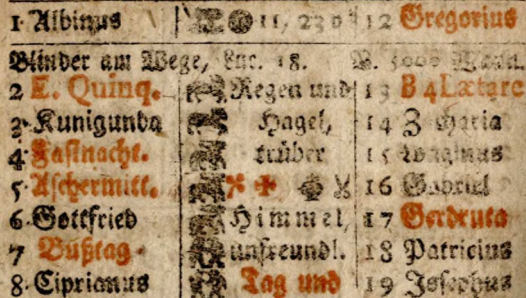 1 Albinus 11, 23 12 Gregorius
Blinder am Wege, Luc. 18.
2 E. Quinq. Regen und 13 B 4 Lætare
3 Kunigunda Hagel, 14 Zacharia
4 Fastnacht. trüber 15
5 Aschermitt. 16 Gabriel
6 Gottfried Himmel, 17 Gerdruta
7 Bußtag unfreundl. 18 Patricius
8 Ciprianus Tag und 19 Josephus